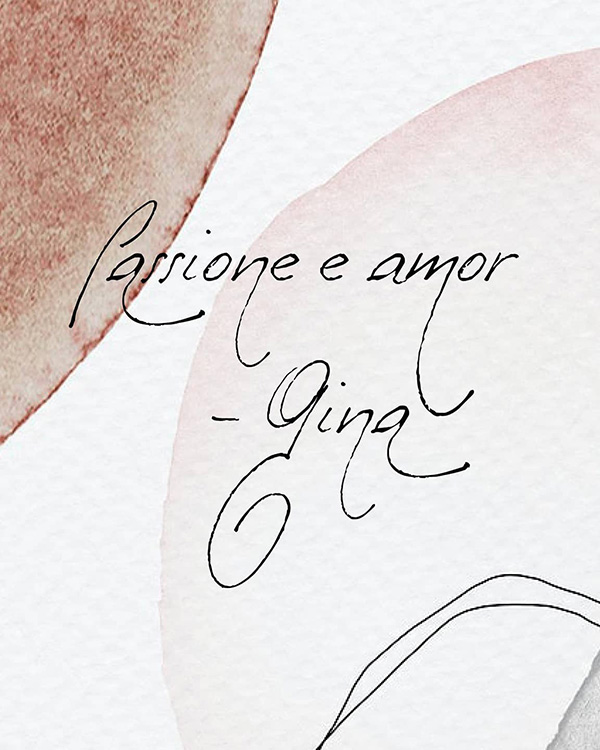 Passione e amor
- Gina